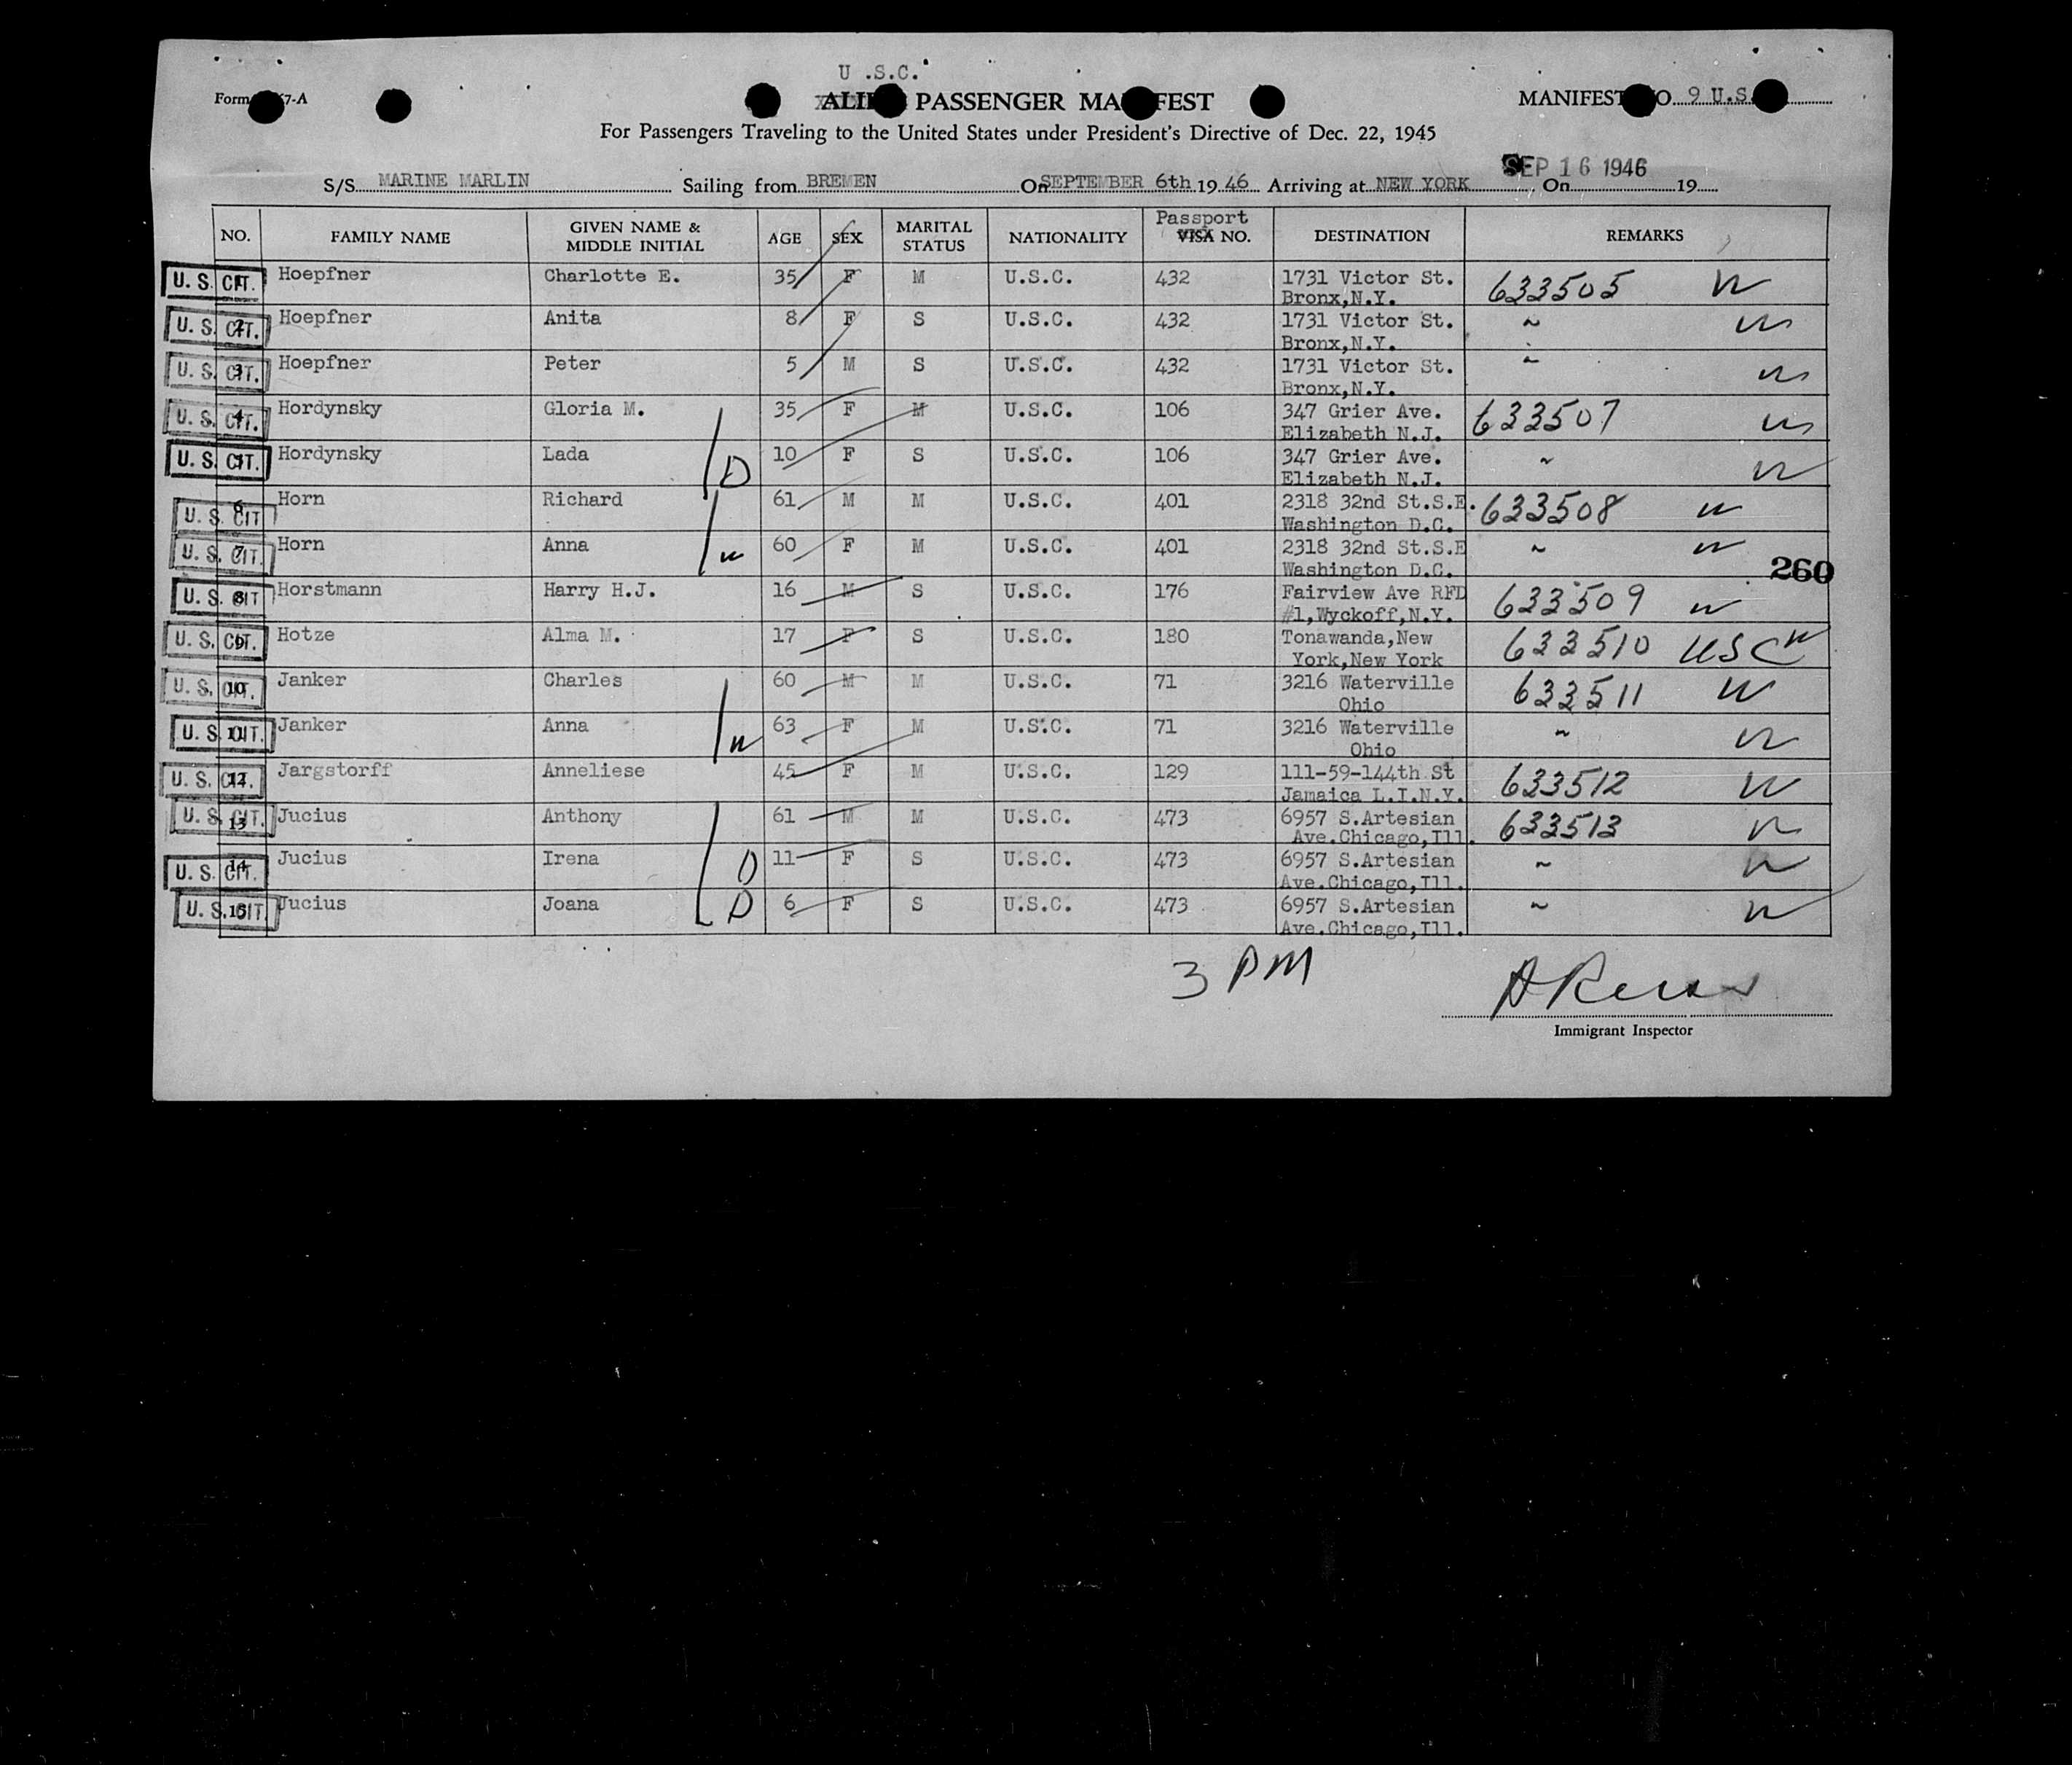 U.S.C.
Form 7-A
ALIEN PASSENGER MANIFEST
MANIFEST NO 9 U.S.
For Passengers Traveling to the United States under President's Directive of Dec. 22, 1945
S/S MARINE MARLIN Sailing from BREMEN On SEPTEMBER 6th 19 46 Arriving at NEW YORK On SEP 16 1946 19
NO. FAMILY NAME GIVEN NAME & MIDDLE INITIAL AGE SEX MARITAL STATUS NATIONALITY Passport VISA NO. DESTINATION REMARKS
U. S. CIT. 1 Hoepfner Charlotte E. 35 F M U.S.C. 432 1731 Victor St. 633505
Bronx,N.Y.
U. S. CIT. 2 Hoepfner Anita 8 F S U.S.C. 432 1731 Victor St. ~
Bronx,N.Y.
U. S. CIT. 3 Hoepfner Peter 5 M S U.S.C. 432 1731 Victor St. ~
Bronx,N.Y.
U. S. CIT. 4 Hordynsky Gloria M. 35 F M U.S.C. 106 347 Grier Ave. 633507
Elizabeth N.J.
U. S. CIT. 5 Hordynsky Lada D 10 F S U.S.C. 106 347 Grier Ave. ~
Elizabeth N.J.
U. S. CIT 6 Horn Richard 61 M M U.S.C. 401 2318 32nd St.S.E. 633508
Washington D.C.
U. S. CIT. 7 Horn Anna 60 F M U.S.C. 401 2318 32nd St.S.E ~
Washington D.C.
260
U. S. CIT 8 Horstmann Harry H.J. 16 M S U.S.C. 176 Fairview Ave RFD 633509
#1,Wyckoff,N.Y.
U. S. CIT. 9 Hotze Alma M. 17 F S U.S.C. 180 Tonawanda,New 633510 USC
York,New York
U. S. CIT. 10 Janker Charles 60 M M U.S.C. 71 3216 Waterville 633511
Ohio
U. S. CIT. 11 Janker Anna 63 F M U.S.C. 71 3216 Waterville ~
Ohio
U. S. CIT. 12 Jargstorff Anneliese 45 F M U.S.C. 129 111-59-144th St 633512
Jamaica L.I.N.Y.
U. S. CIT. 13 Jucius Anthony 61 M M U.S.C. 473 6957 S.Artesian 633513
Ave.Chicago,Ill.
U. S. CIT. 14 Jucius Irena D 11 F S U.S.C. 473 6957 S.Artesian ~
Ave.Chicago,Ill.
U. S. CIT. 15 Jucius Joana D 6 F S U.S.C. 473 6957 S.Artesian ~
Ave.Chicago,Ill.
3 PM
Immigrant Inspector